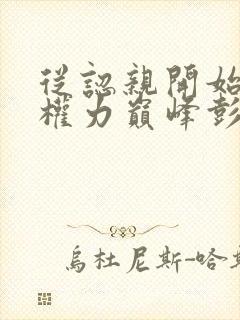 從認親開始
權力巔峰彭
烏杜尼斯-哈